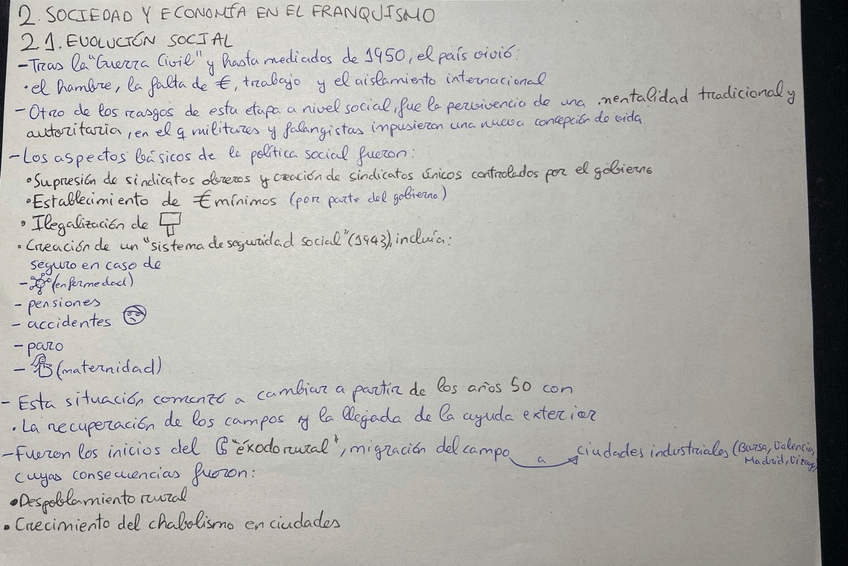 2. SOCIEDAD Y ECONOMÍA EN EL FRANQUISMO
2.1. EVOLUCIÓN SOCIAL
- Tras la "Guerra Civil" y hasta mediados de 1950, el país vivió:
• el hambre, la falta de €, trabajo y el aislamiento internacional
- Otro de los rasgos de esta etapa a nivel social, fue la pervivencia de una mentalidad tradicional y
autoritaria, en el q militares y falangistas impusieron una nueva concepción de vida
- Los aspectos básicos de la política social fueron:
• Supresión de sindicatos obreros y creación de sindicatos únicos controlados por el gobierno
• Establecimiento de € mínimos (por parte del gobierno)
• Ilegalización de
• Creación de un "sistema de seguridad social" (1943), incluía:
seguro en caso de
- (enfermedad)
- pensiones
- accidentes
- paro
- (maternidad)
- Esta situación comenzó a cambiar a partir de los años 50 con
• La recuperación de los campos y la llegada de la ayuda exterior
- Fueron los inicios del "éxodo rural", migración del campo a ciudades industriales (Barsa, Valencia,
Madrid, Vizcaya)
cuyas consecuencias fueron:
• Despoblamiento rural
• Crecimiento del chabolismo en ciudades